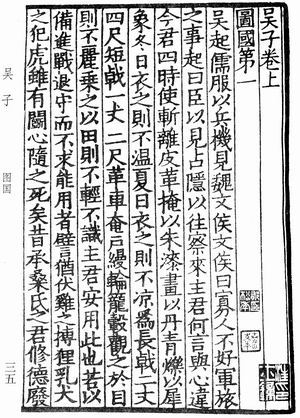 吳子卷上
圖國第一
吳起儒服以兵機見魏文矦文矦曰寡人不好軍旅
之事起曰臣以見占隱以往察來主君何言與心違
今君四時使斬離皮革掩以朱漆畫以丹青爍以犀
象冬日衣之則不溫夏日衣之則不凉為長戟二丈
四尺短戟一丈二尺革車奄戶縵輪籠轂觀之於目
則不麗乘之以田則不輕不識主君安用此也若以
備進戰退守而不求能用者譬猶伏雞之搏狸乳犬
之犯虎雖有鬬心隨之死矣昔承桑氏之君修德廢
吴子
图国
三五